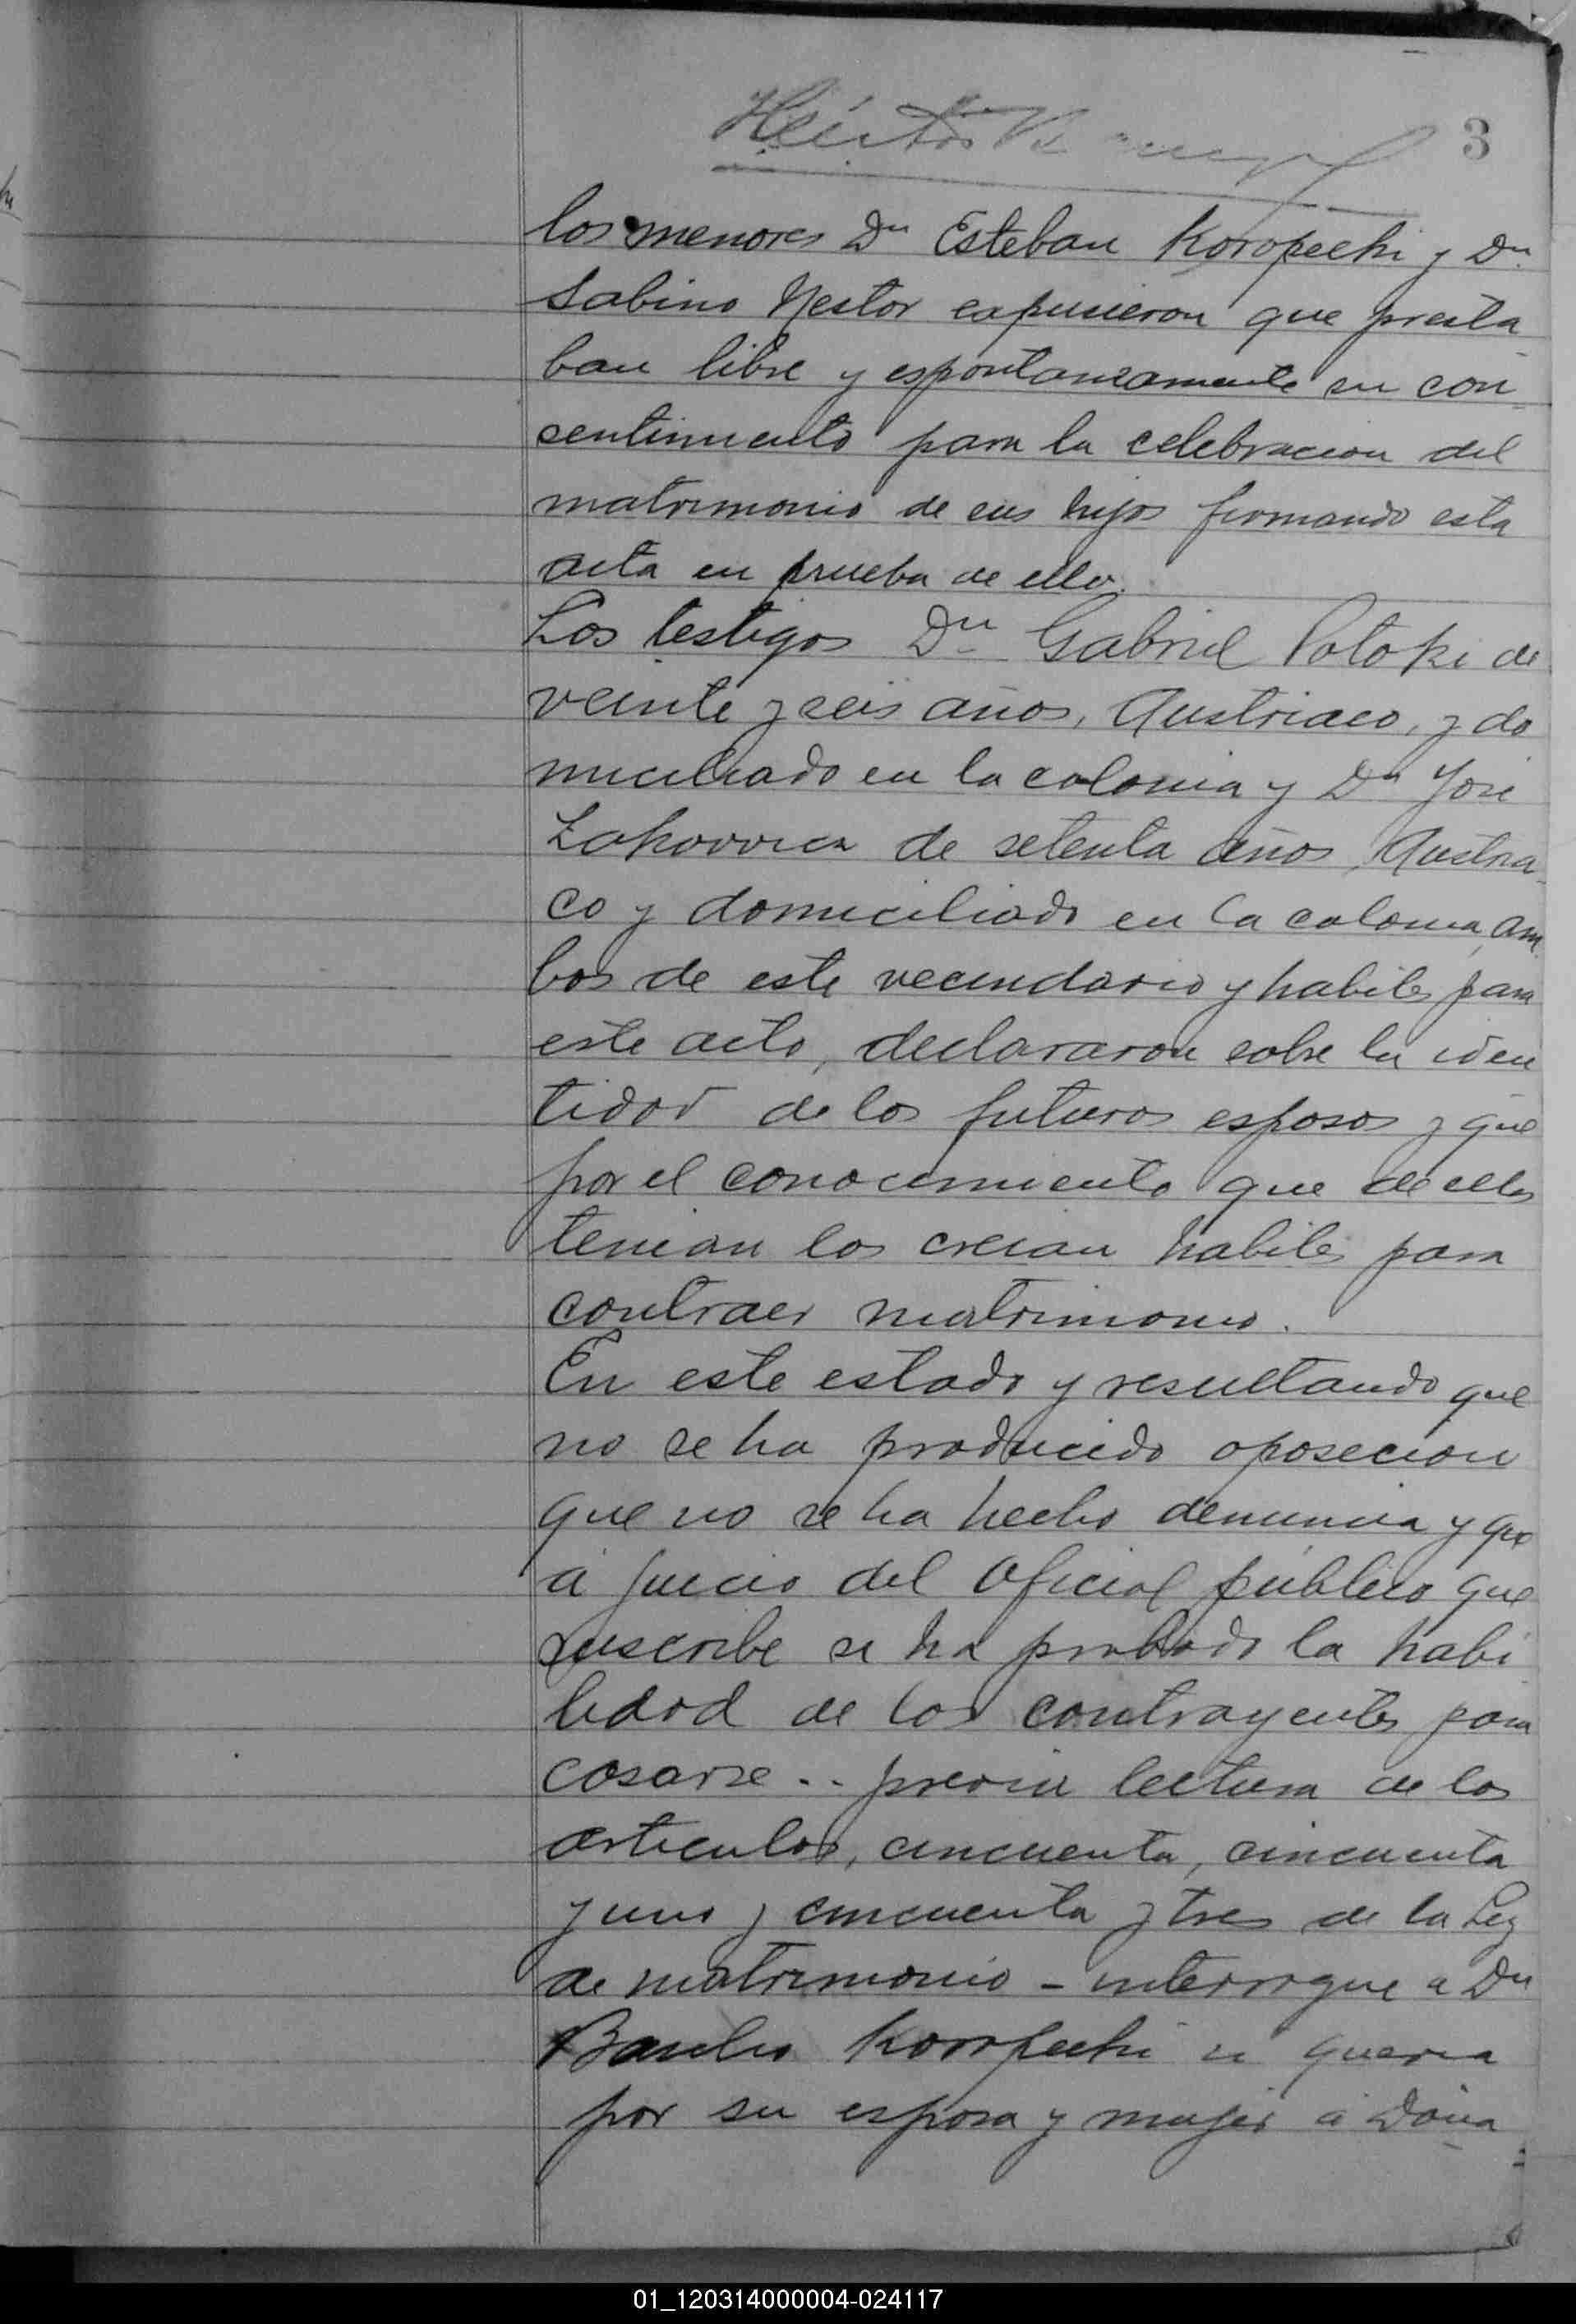 3
los menores Dn Esteban Koropecki y Dn
Sabino Nestor expusieron que presta
ban libre y espontaneamente su con
sentimiento para la celebracion del
matrimonio de sus hijos firmando esta
acta en prueba de ello.
Los testigos Dn Gabriel Potoki de
veinte y seis años, Austriaco, y do
miciliado en la colonia y Dn José
de setenta años, Austria
co y domiciliado en la colonia, am
bos de este vecindario y habiles para
este acto, declararon sobre la iden
tidad de los futuros esposos y que
por el conocimiento que de ellos
tenian los creian habiles para
contraer matrimonio.
En este estado y resultando que
no se ha producido oposicion
que no se ha hecho denuncia y que
á juicio del oficial público que
suscribe se ha probado la habi
lidad de los contrayentes para
casarse .. previa lectura de los
articulos, cincuenta, cincuenta
y uno y cincuenta y tres de la Ley
de matrimonio - interrogue a Dn
Basilio Koropecki si queria
por su esposa y mujer á Doña
01_120314000004-024117